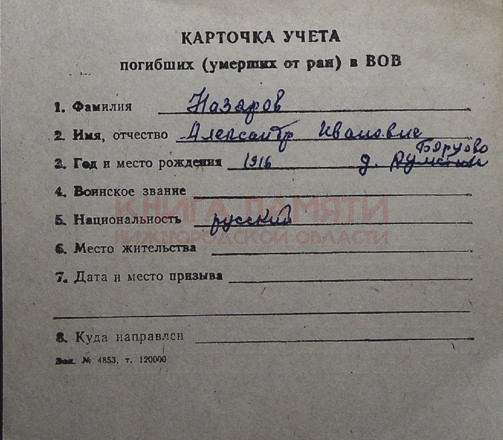 КАРТОЧКА УЧЕТА
погибших (умерших от ран) в ВОВ
1. Фамилия Назаров
2. Имя, отчество Александр Иванович
Борцово
3. Год и место рождения 1916 д.
4. Воинское звание
КНИГА ПАМЯТИ
5. Национальность русский
НИЖЕГОРОДСКОЙ ОБЛАСТИ
6. Место жительства
7. Дата и место призыва
8. Куда направлен
Зак. № 4853, т. 120000